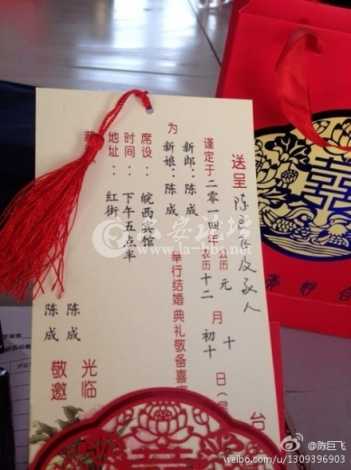 送呈 陈
及家人
台
谨定于二零一四年
历元 十 日
农历十二 初十
为
新郎：陈 成
新娘：陈 成
举行结婚典礼敬备喜
席设：皖西宾馆
时间：下午五点半
地址：红街
光临
陈 成
陈 成
敬邀
六安论坛
la-bbs.net
@陈巨飞
weibo.com/u/1309396903